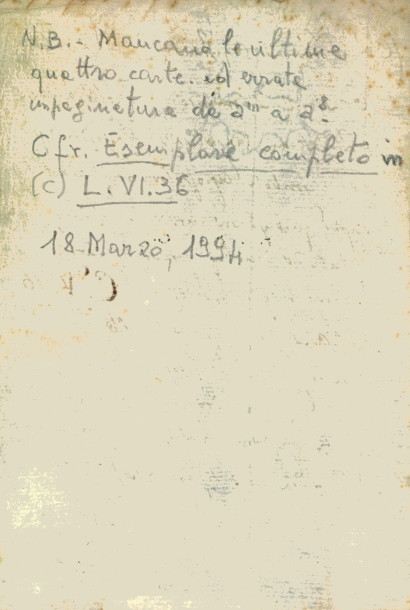 N.B.- Mancano le ultime
quattro carte. ed errata
impaginatura da a
Cfr. Esemplare completo in
(c) L.VI.36
18 Marzo, 1994